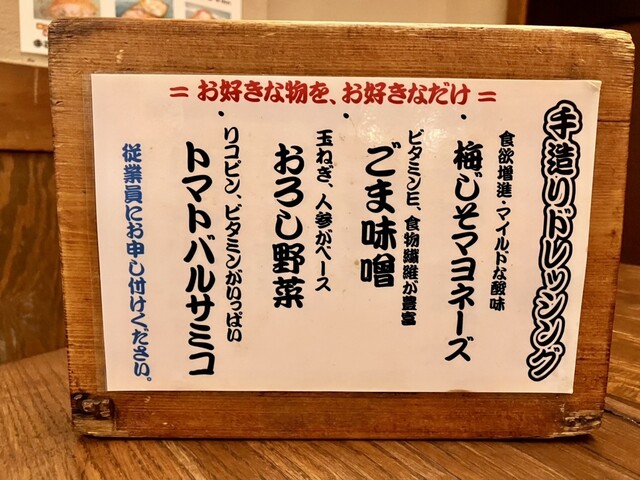 = お好きな物を、お好きなだけ =
手造りドレッシング
食欲増進・マイルドな酸味
・梅じそマヨネーズ
ビタミンE、食物繊維が豊富
・ごま味噌
玉ねぎ、人参がベース
・おろし野菜
リコピン、ビタミンがいっぱい
・トマトバルサミコ
従業員にお申し付けください。